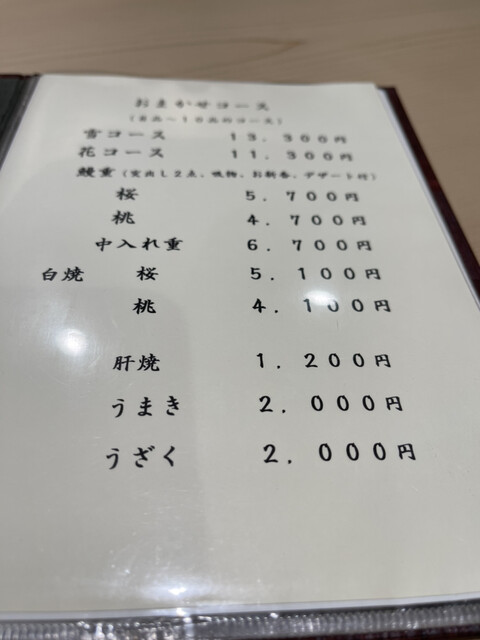 おまかせコース
雪コース 13.300円
花コース 11.300円
鰻重(突出し2点、吸物、お新香、デザート付)
桜 5.700円
桃 4.700円
中入れ重 6.700円
白焼 桜 5.100円
桃 4.100円
肝焼 1.200円
うまき 2.000円
うざく 2.000円